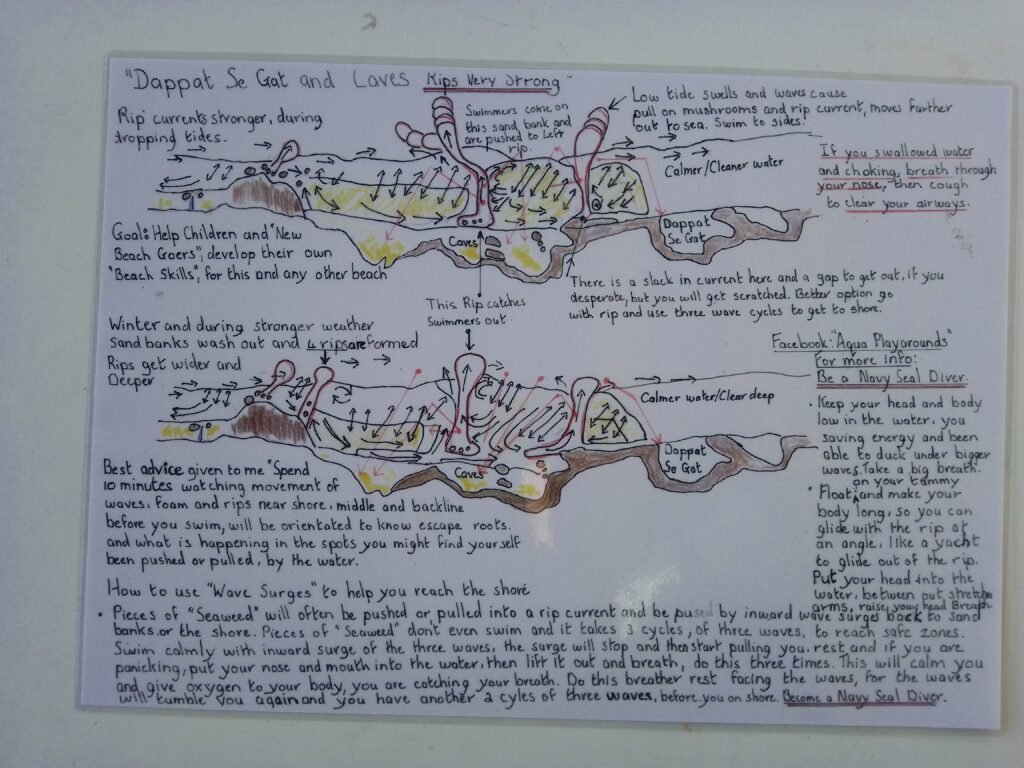 "Dappat Se Gat and Caves Rips Very Strong"
Rip currents stronger, during
dropping tides.
Swimmers come on
this sand bank and
are pushed to Left
rip.
Low tide swells and waves cause
pull on mushrooms and rip current, moves further
out to sea. Swim to sides.
Calmer/Cleaner water
If you swallowed water
and choking, breath through
your nose, then cough
to clear your airways.
Goal: Help Children and "New
Beach Goers", develop their own
"Beach Skills", for this and any other beach
Caves
Dappat
Se Gat
This Rip catches
Swimmers out.
There is a slack in current here and a gap to get out, if you
desperate, but you will get scratched. Better option go
with rip and use three wave cycles to get to shore.
Winter and during stronger weather
Sand banks wash out and 4 rips are formed
Rips get wider and
Deeper
Calmer water/Clear deep
Caves
Dappat
Se Gat
Facebook: "Aqua Playgrounds"
For more info:
Be a Navy Seal Diver.
• Keep your head and body
low in the water, you
saving energy and been
able to duck under bigger
waves. Take a big breath.
on your tummy
• Float and make your
body long, so you can
glide with the rip at
an angle, like a yacht
to glide out of the rip.
Put your head into the
water, between out stretche
arms, raise your head Breath
Best advice given to me "Spend
10 minutes watching movement of
waves, foam and rips near shore, middle and backline
before you swim, will be orientated to know escape roots.
and what is happening in the spots you might find yourself
been pushed or pulled, by the water.
How to use "Wave Surges" to help you reach the shore
• Pieces of "Seaweed" will often be pushed or pulled into a rip current and be pused by inward wave surges back to sand
banks or the shore. Pieces of "Seaweed" don't even swim and it takes 3 cycles, of three waves, to reach safe zones.
Swim calmly with inward surge of the three waves, the surge will stop and then start pulling you, rest and if you are
panicking, put your nose and mouth into the water, then lift it out and breath, do this three times. This will calm you
and give oxygen to your body, you are catching your breath. Do this breather rest facing the waves, for the waves
will tumble you again and you have another 2 cyles of three waves, before you on shore. Become a Navy Seal Diver.